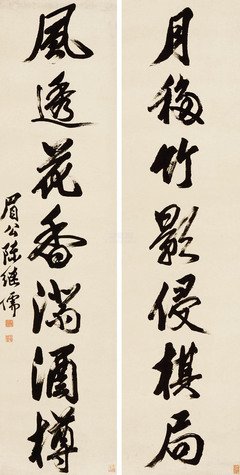 月移竹影侵棋局
風透花香滿酒樽
眉公陳继儒